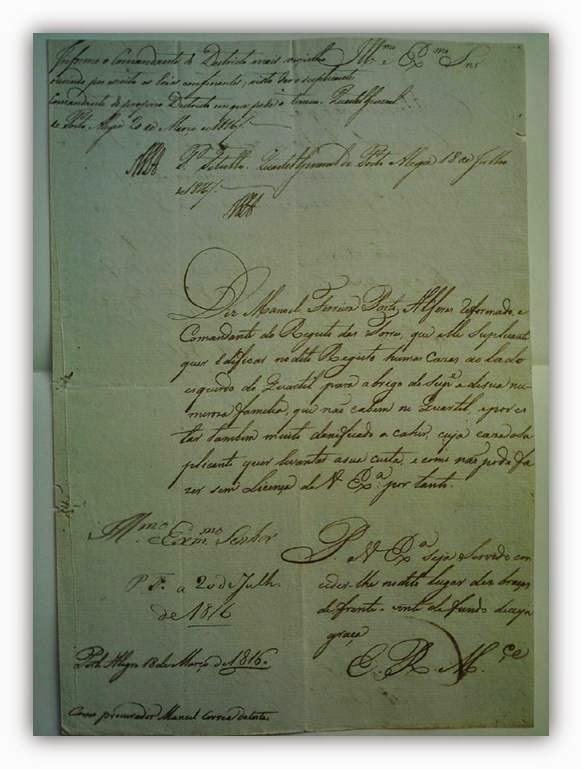 Informe o Comandante do Districto mais vizinho
ouvindo por escrito os lois confinantes, visto ser o suplicante
Comandante do proprio Districto em que pede o terreno. Quartel General
de Porto Alegre 20 de Março de 1816
Illmo e Exmo Snr
Quartel General de Porto Alegre 18 de Julho
de 1816
Diz Manoel Ferreira Porto, Alferes reformado, e
Comandante do Registo das Torres, que elle Suplicante
quer Edificar no dito Registo humas Cazas ao lado
esquerdo do Quartel para abrigo do Supe e de sua nu-
miroza familia, que não cabem no Quartel, e por es-
tar tambem muito danificado a cahir, cuja caza o Su-
plicante quer levantar a sua custa, e como não poda fa-
zer sem Licença de V Exa por tanto.
Illmo Exmo Senhor
P. F. a 20 de Julh.
de 1816
P V Exa Seja Servido con-
ceder-lhe no dito lugar dez braças
de frente e vinte de fundo de cuja
graça
E. R. Mce
Porto Alegre 18 de Março de 1816.
Como procurador Manoel Correa